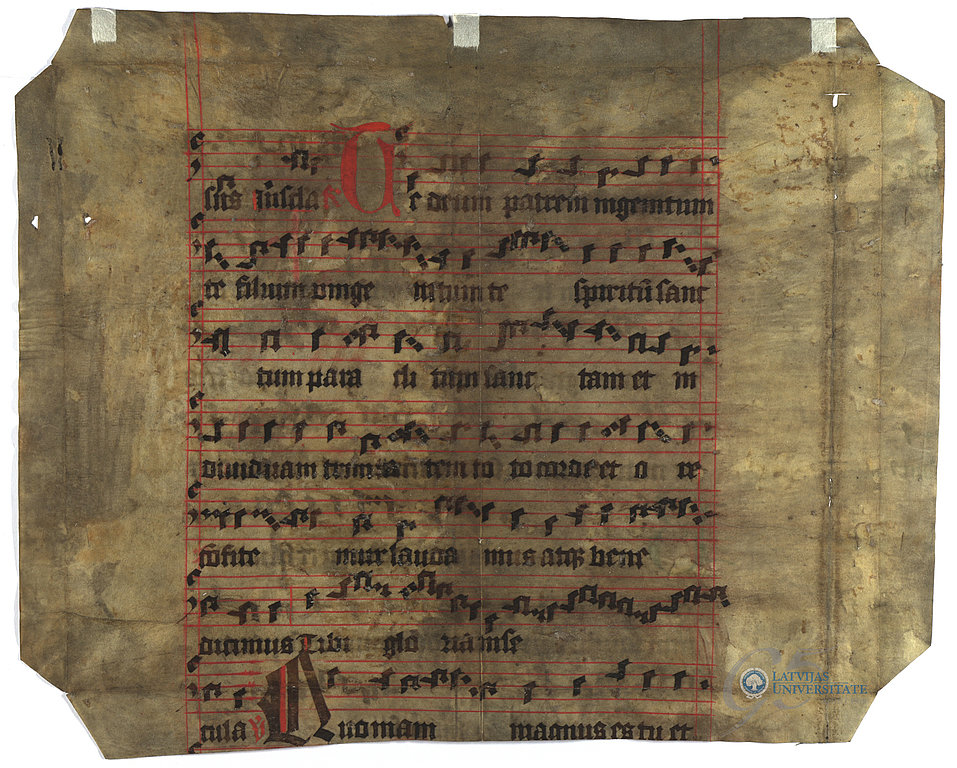 sits in scła R Te deum patrem ingenitum
te filium vnige nitum te spiritū sanc
tum para cli tum sanc tam et in
diuiduam trini tatem to to corde et o re
cōfite mur lauda mus atqꝫ bene
dicimus Tibi glo ria in se
cula V Quoniam magnus es tu et
LATVIJAS
UNIVERSITATE